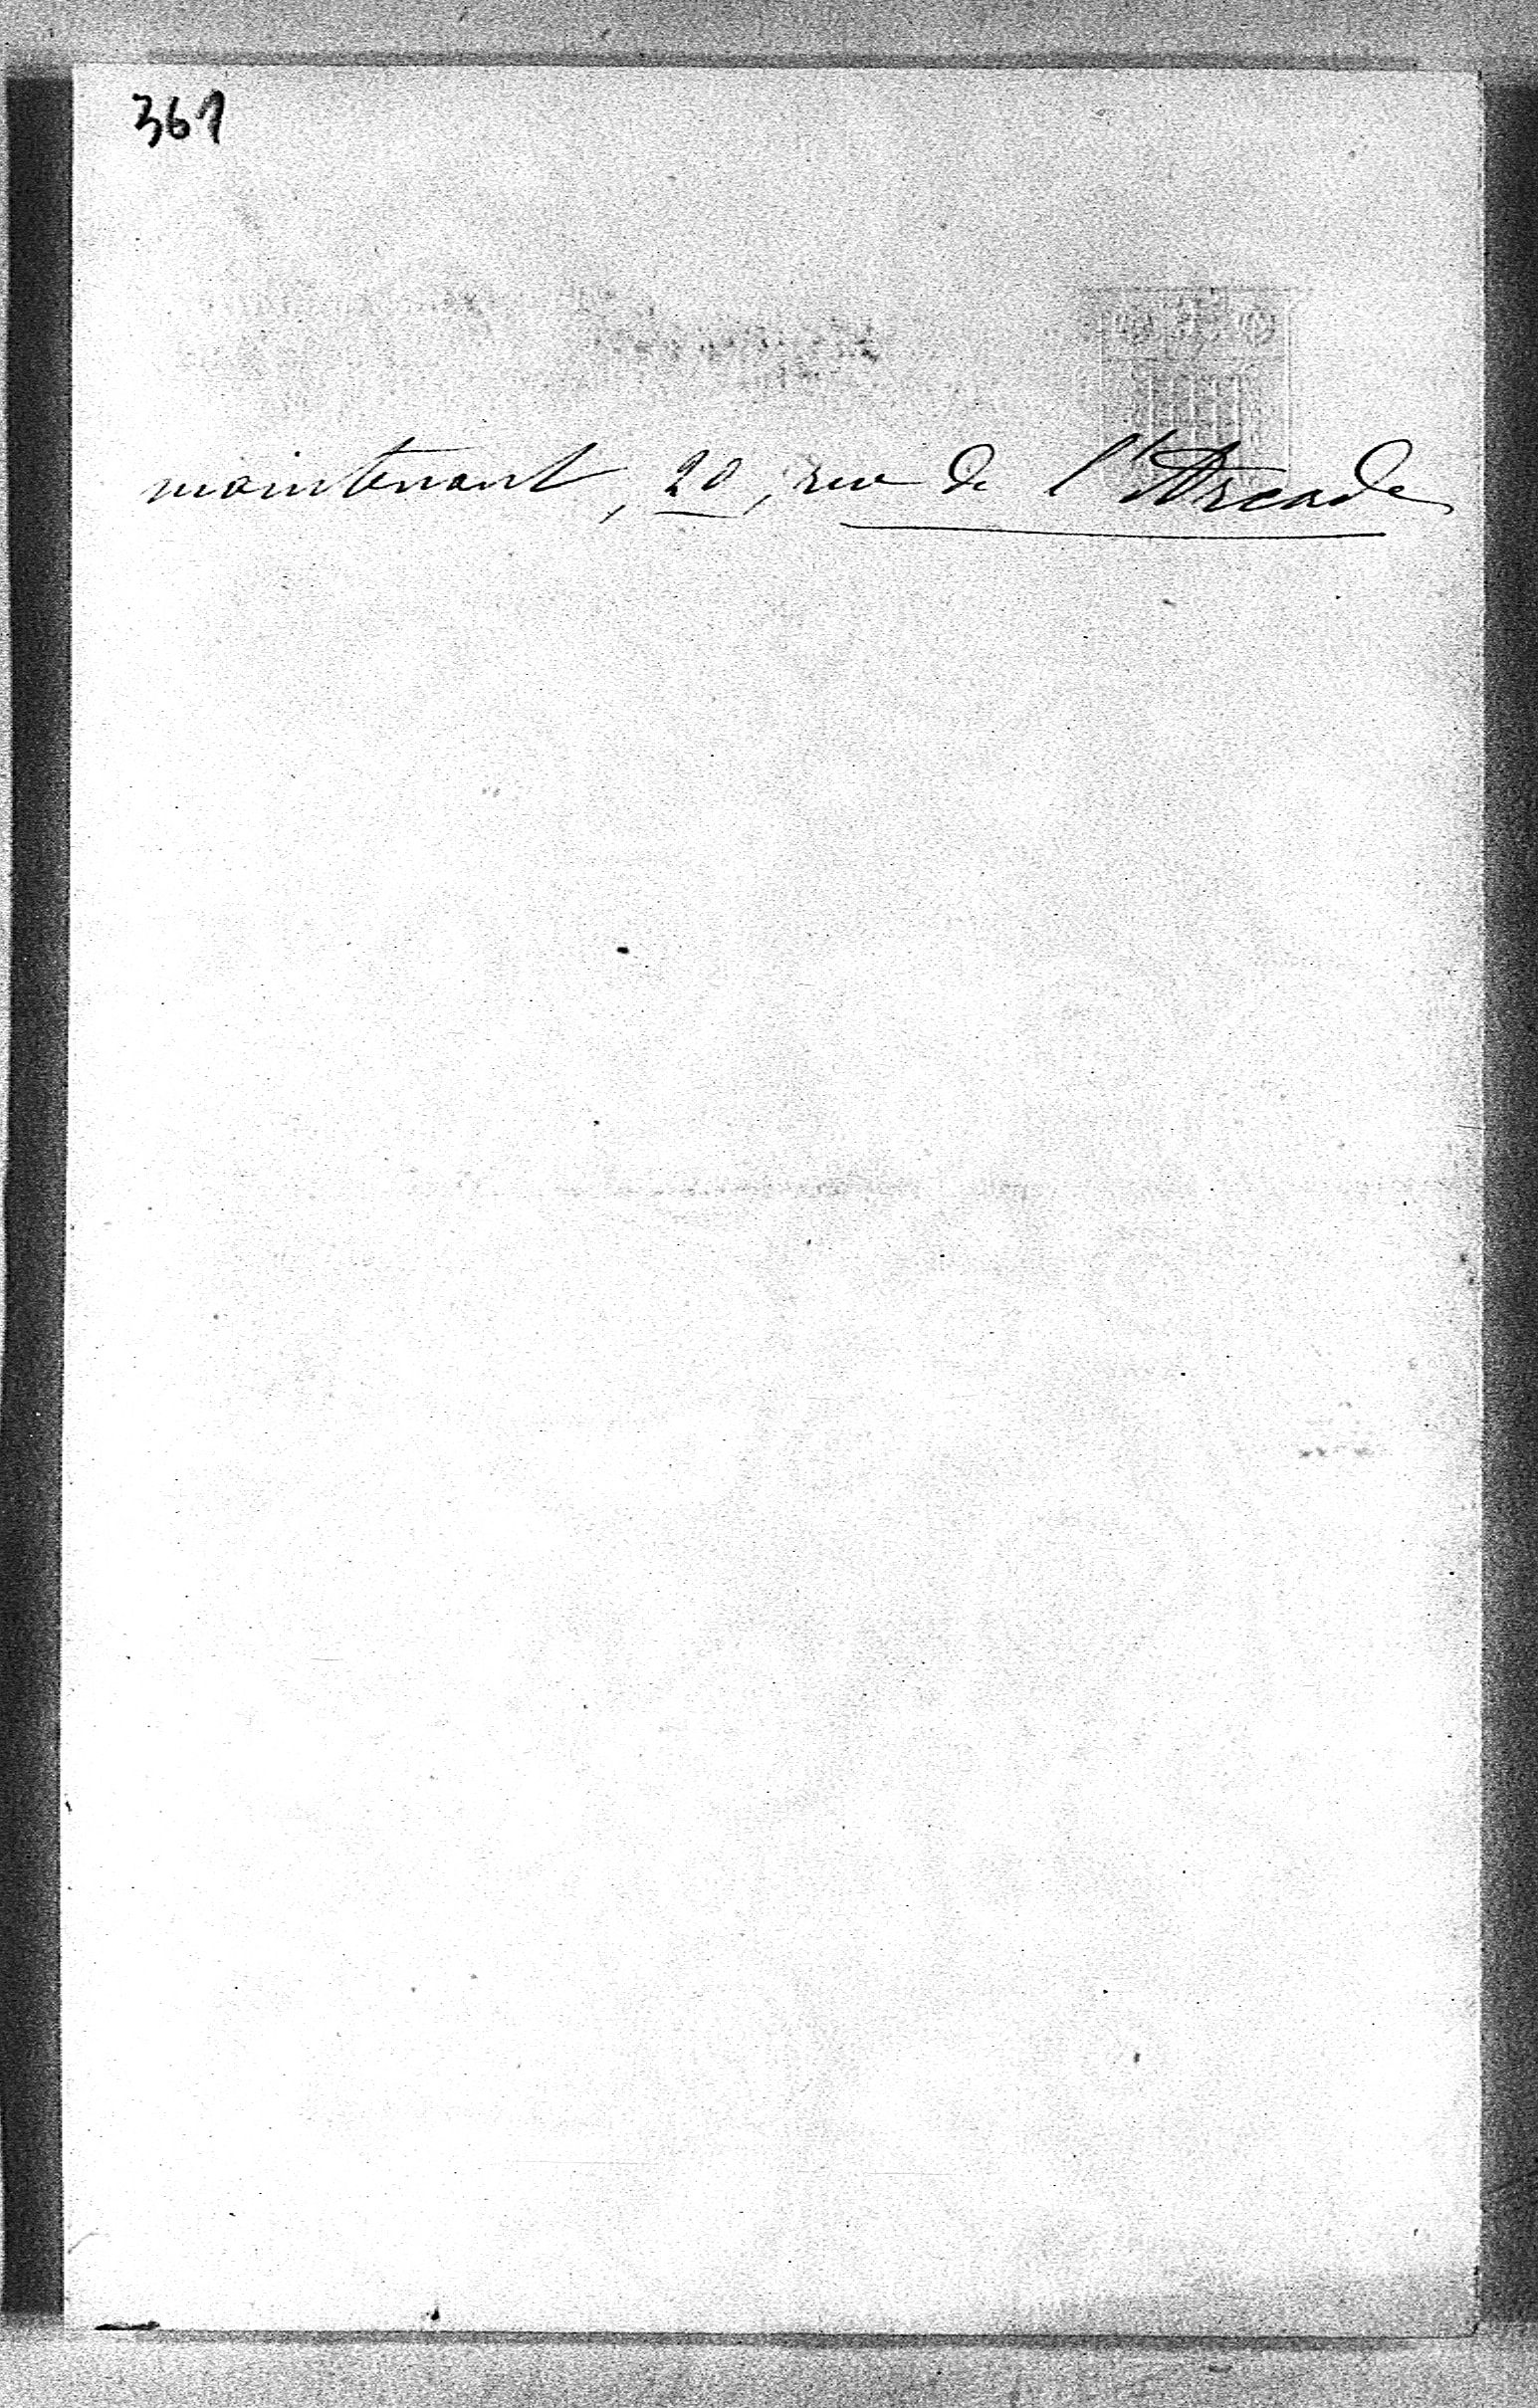 361
maintenant, 20, rue de l'Arcade